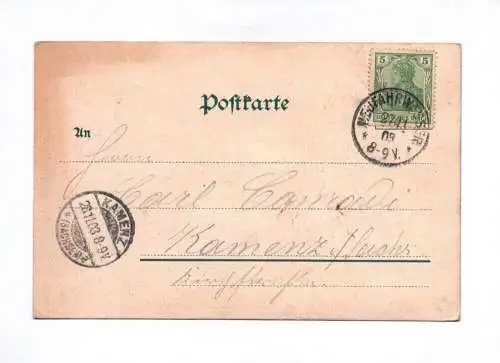 5 5
Postkarte
NEUFAHRWASSER
27.11.
03
8-9V.
An
Herrn
Carl Conradi
KAMENZ
28.11.03 8-9V.
Kamenz